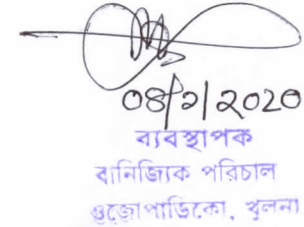 08/२/2020
ব্যবস্থাপক
বানিজ্যিক পরিচাল
ওজোপাডিকো, খুলনা